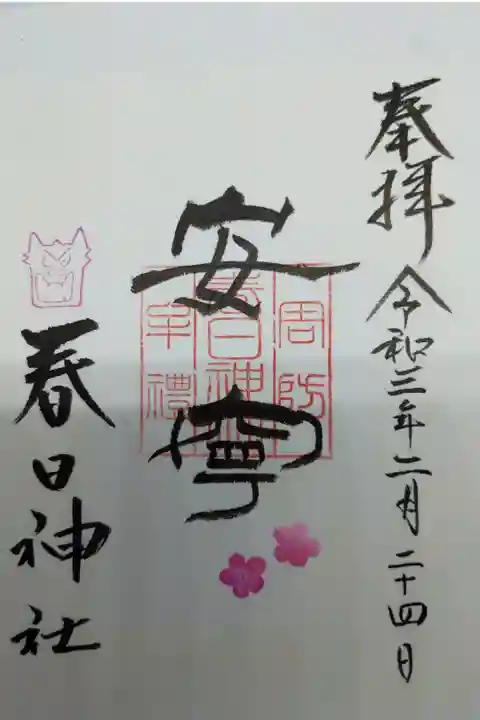 奉拝 令和三年二月二十四日
安寧
周防
春日神社
牟禮
春日神社